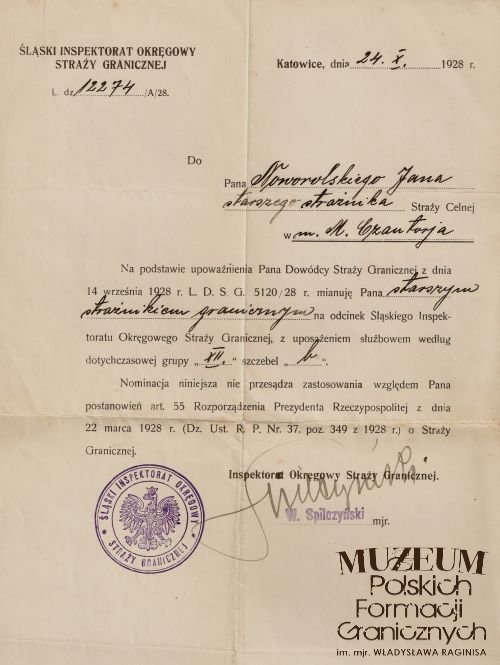 ŚLĄSKI INSPEKTORAT OKRĘGOWY
STRAŻY GRANICZNEJ
L. dz. 12274 /A/28.
Katowice, dnia 24. X. 1928 r.
Do
Pana Noworolskiego Jana
starszego strażnika Straży Celnej
w m. M. Czantorja
Na podstawie upoważnienia Pana Dowódcy Straży Granicznej z dnia
14 września 1928 r. L. D. S. G. 5120/28 r. mianuję Pana starszym
strażnikiem granicznym na odcinek Śląskiego Inspek-
toratu Okręgowego Straży Granicznej, z uposażeniem służbowem według
dotychczasowej grupy „XII.“ szczebel „b“.
Nominacja niniejsza nie przesądza zastosowania względem Pana
postanowień art. 55 Rozporządzenia Prezydenta Rzeczypospolitej z dnia
22 marca 1928 r. (Dz. Ust. R. P. Nr. 37. poz. 349 z 1928 r.) o Straży
Granicznej.
Inspektorat Okręgowy Straży Granicznej.
Spilczyński
W. Spilczyński mjr.
ŚLĄSKI INSPEKTORAT OKRĘGOWY
* STRAŻY GRANICZNEJ *
MUZEUM
Polskich
Formacji
Granicznych
im. mjr. WŁADYSŁAWA RAGINISA